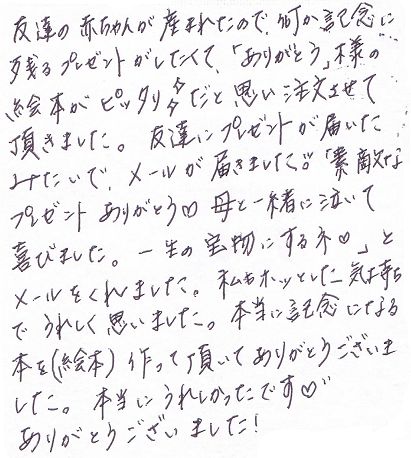 友達の赤ちゃんが産まれたので、何か記念に
残るプレゼントがしたくて、「ありがとう」様の
絵本がピッタリダだと思い注文させて
頂きました。友達にプレゼントが届いた
みたいで、メールが届きました。「素敵な
プレゼントありがとう♡母と一緒に泣いて
喜びました。一生の宝物にするネ♡」と
メールをくれました。私もホッとした気持ち
でうれしく思いました。本当に記念になる
本を(絵本)作って頂いてありがとうございま
した。本当にうれしかったです♡
ありがとうございました!